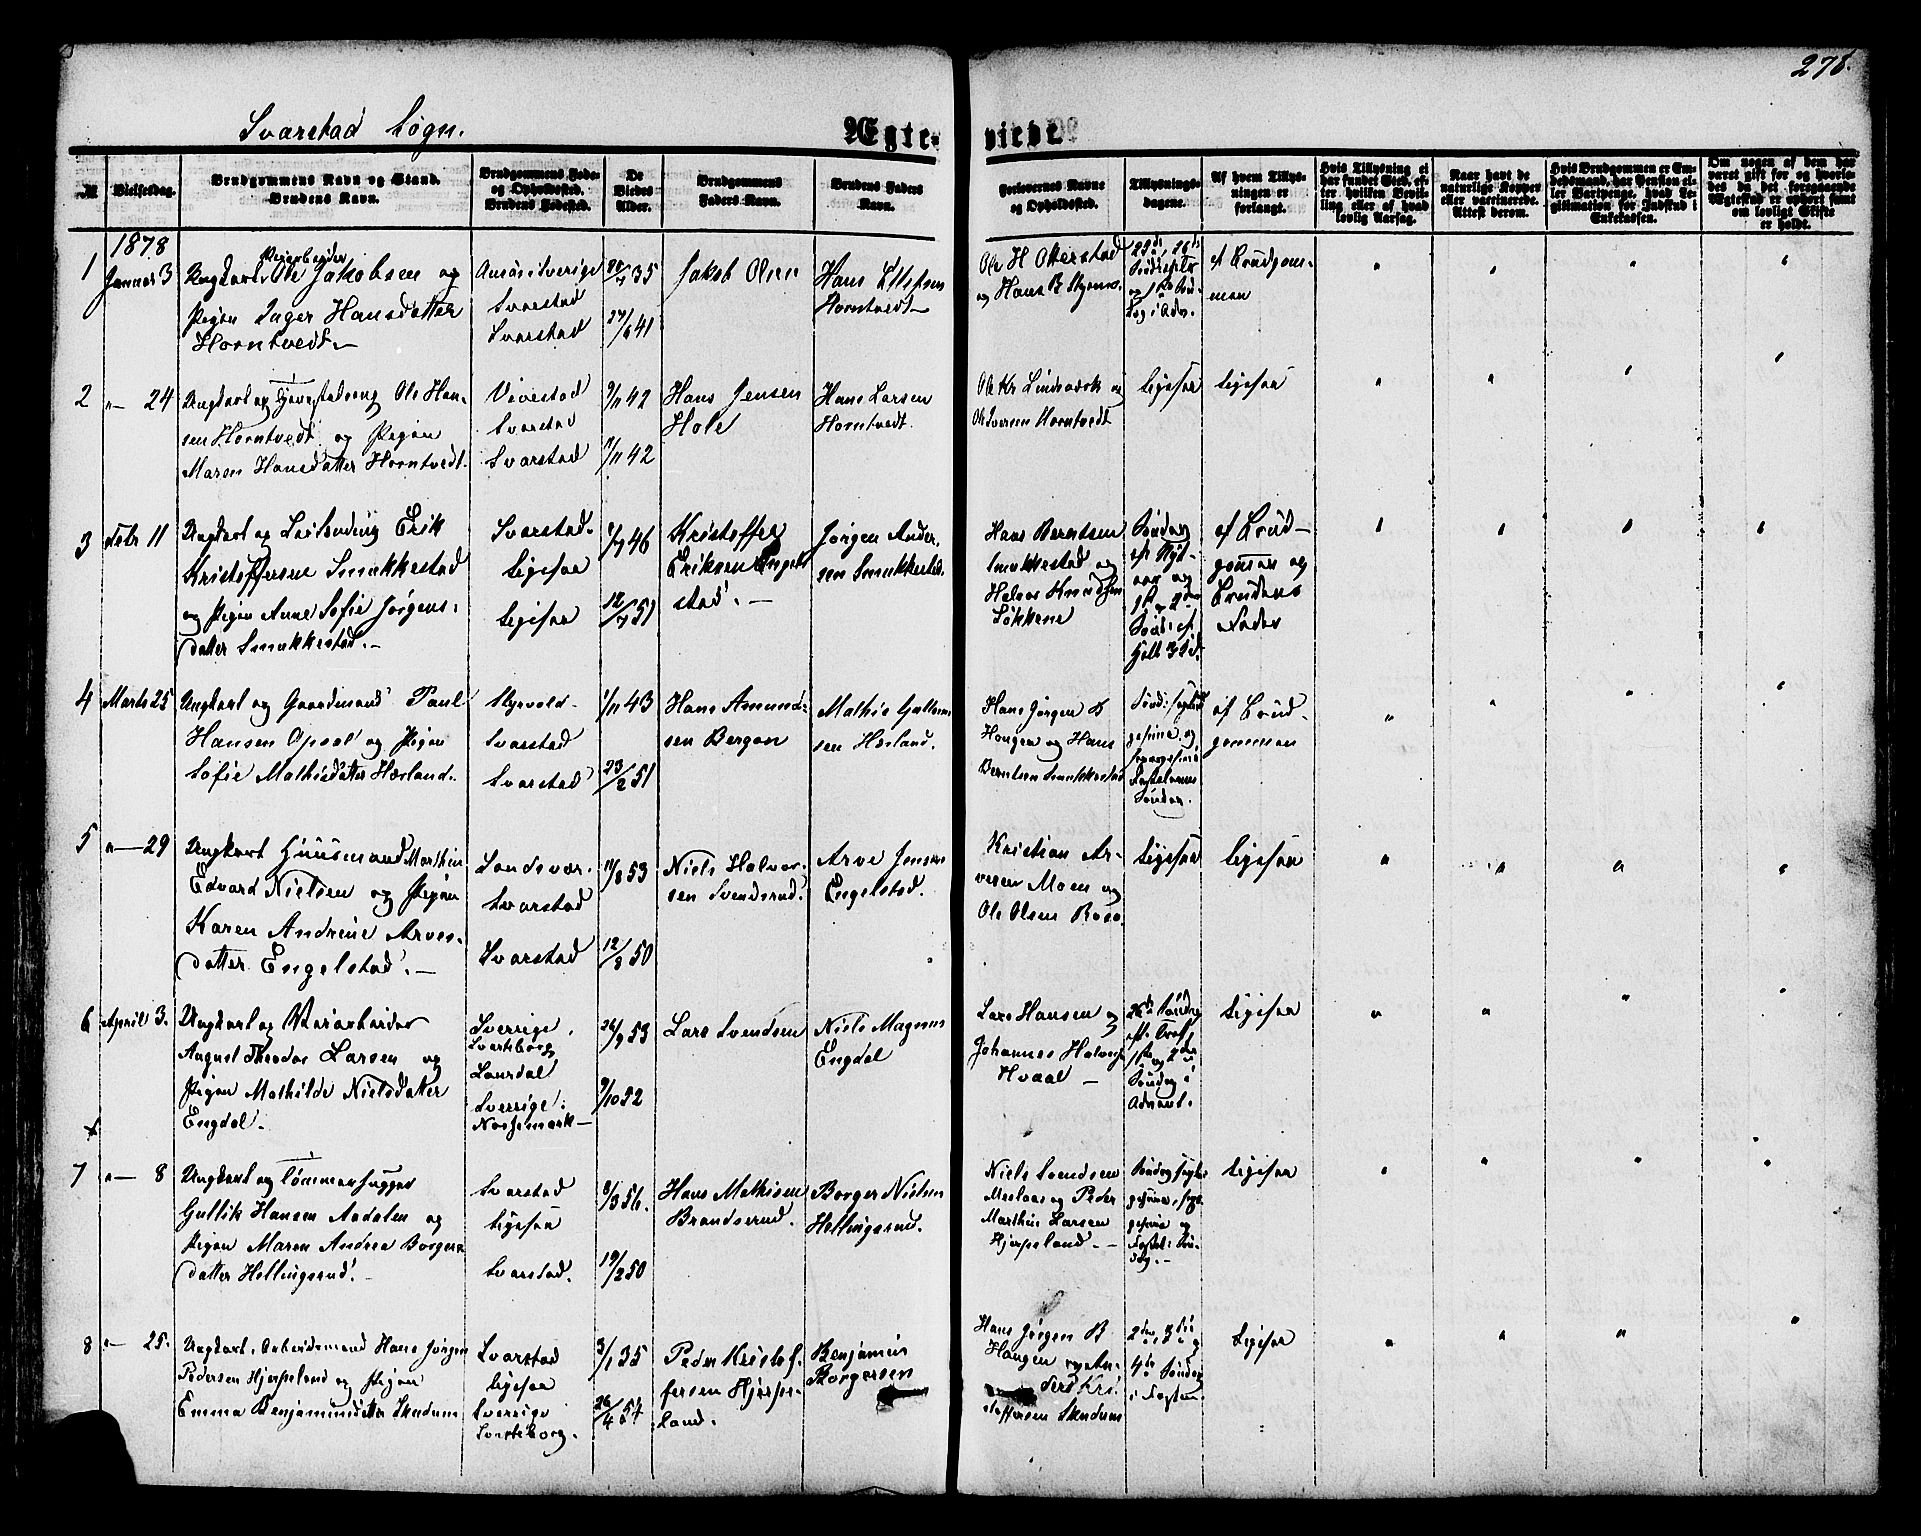 278.
Svarstad Sogn.
Ægte- viede.
№
Vielsesdag.
Brudgommens Navn og Stand.
Brudens Navn.
Brudgommens Føde-
og Opholdssted.
Brudens Fødested.
De
Viedes
Alder.
Brudgommens
Faders Navn.
Brudens Faders
Navn.
Forlovernes Navne
og Opholdssted.
Tillysnings-
dagene.
Af hvem Tillys-
ningen er
forlangt.
Hvis Tillysning ei
har fundet Sted, ef-
ter hvilken Bevil-
ling eller af hvad
lovlig Aarsag.
Naar havt de
naturlige Kopper
eller vaccinerede.
Attest derom.
Hvis Brudgommen er Em-
bedsmand, har Pension el-
ler Vartpenge, hvad Le-
gitimation for Indskud i
Enkekassen.
Om nogen af dem har
været gift før og hvorle-
des da det foregaaende
Ægteskab er ophørt samt
om lovligt Skifte
er holdt.
1878
1 Januar 3
Ungkarl Ole Jakobsen og
Pigen Inger Hansdatter
Horntvedt.
Svarstad
Svarstad
35
27/6 41
Jakob Olsen
Hans Ellefsen
Horntvedt
Ole H Otterstad
og Hans B
af Brudgom-
men
2 " 24
Ungkarl og Ole Han-
sen Horntvedt og Pigen
Maren Hansdatter Horntvedt.
Vivestad
Svarstad
Svarstad
9/11 42
9/11 42
Hans Jensen
Hole
Hans Larsen
Horntvedt.
Ole Kr Lindsverk og
Ole Iversen Horntvedt
Ligesaa
Ligesaa
3 Febr 11
Ungkarl og Erik
Kristoffersen Smukkestad
og Pigen Anne Sofie Jørgens-
datter Smukkestad.
Svarstad.
Ligesaa
Ligesaa
46
12/7 51
Kristoffer
Eriksen Engel-
stad.
Jørgen Ander-
sen Smukkestad.
Hans Berntsen
Smukkestad og
Halvor Knudsen
Løkkene
Søndag
ef. Nyt-
aar og
1ste og 2den
Sønd. ef.
Hell. 3 K.
af Brud-
gommen og
Brudens
Fader
4 Marts 25
Ungkarl og Gaardmand Paul
Hansen Opsal og Pigen
Sofie Mathisdatter Hærland.
Styrvold
Svarstad
Svarstad
1/11 43
23/2 51
Hans Amund-
sen Bergan
Mathis Gulliks-
sen Hærland.
Hans Jørgen B
Haugen og Hans
Berntsen Smukkestad
Sønd: septua-
gesima og
sexagesima
Fastelavns
Søndag.
af Brud-
gommen
5 " 29
Ungkarl Huusmand Marthin
Edvard Nielsen og Pigen
Karen Andrine Arves-
datter Engelstad.
Sandsvær.
Svarstad
Svarstad
11/8 53
12/8 50
Niels Halvor-
sen Svendsrud.
Arve Jensen
Engelstad.
Kristian Ar-
vesen Moen og
Ole Olsen
Ligesaa
Ligesaa
6 April 3.
Ungkarl og Veiarbeider
August Theodor Larsen og
Pigen Mathilde Nielsdatter
Engdal.
Sverrige.
Svarteborg
Laurdal
Sverrige.
Nossemark
26/9 53
9/10 52
Lars Svendsen
Niels Magnus
Engdal
Lars Hansen og
Johannes Halvors.
Hvaal
26de Søndag
eft. Tref.
1ste og 2den
Søndag i
Advent.
Ligesaa
7 " 8
Ungkarl og Tømmerhugger
Gullik Hansen Aadalen og
Pigen Maren Andrea Borgers-
datter Hellingsrud.
Svarstad
Ligesaa
Svarstad.
8/3 56.
19/2 50
Hans Mathisen
Brandsrud.
Borger Nielsen
Hellingsrud.
Niels Svendsen
og Peder
Marthin Larsen
Hjerpeland.
Søndag septua-
gesima, sexa-
gesima og
Fastel: Søn-
dag.
Ligesaa
8 " 25.
Ungkarl. Arbeidsmand Hans Jørgen
Pedersen Hjerpeland og Pigen
Emma Benjaminsdatter Skudum
Svarstad
Ligesaa
Sverrige
Svarteborg.
3/1 35
26/4 57
Peder Kristof-
fersen Hjerpe-
land.
Benjamin
Borgersen
Hans Jørgen B
Haugen og An-
ders Kri-
stoffersen Skudum
2den, 3die og
4de Søndag
i Fasten.
Ligesaa